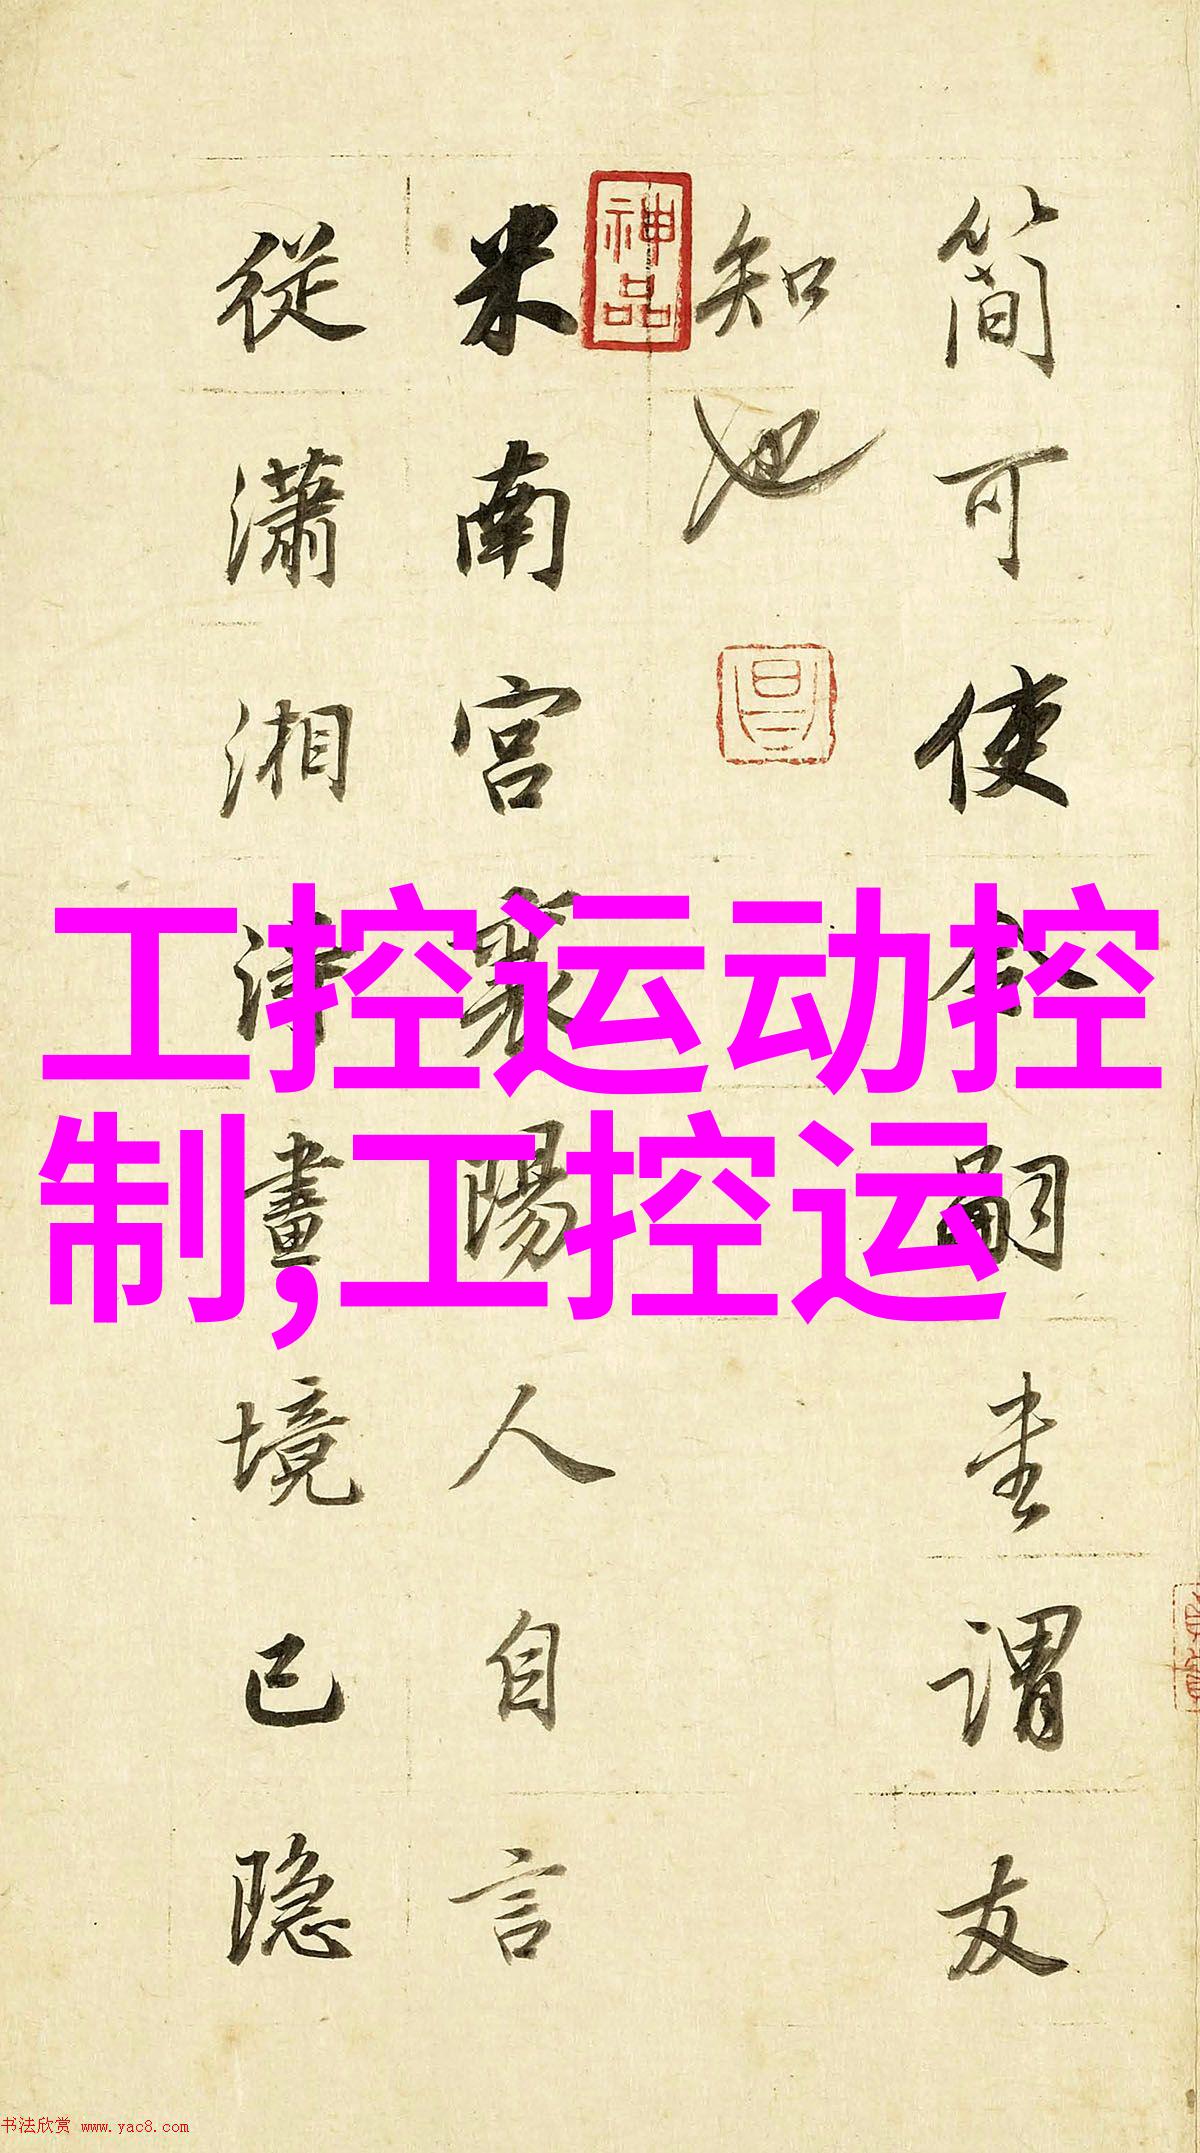 简可使令嗣謂友
知也
神品
米南宮襄陽人自言
從瀟湘得畫境已隐
工控运动控
制,工控运
书法欣赏 www.yac8.com